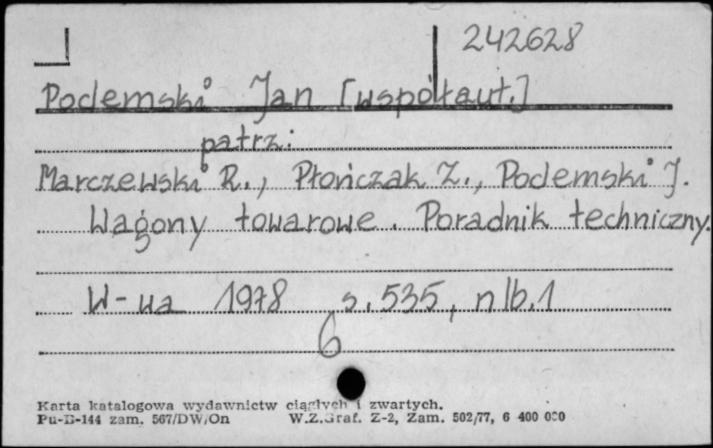 242628
Podemski Jan [współaut.]
patrz:
Marczewski R., Płończak Z., Podemski J.
Wagony towarowe. Poradnik techniczny.
W-wa 1978 s. 535, nlb. 1
6
Karta katalogowa wydawnictw ciągłych i zwartych.
Pu-D-144 zam. 567/DW/On W.Z.Graf. Z-2, Zam. 502/77, 6 400 000